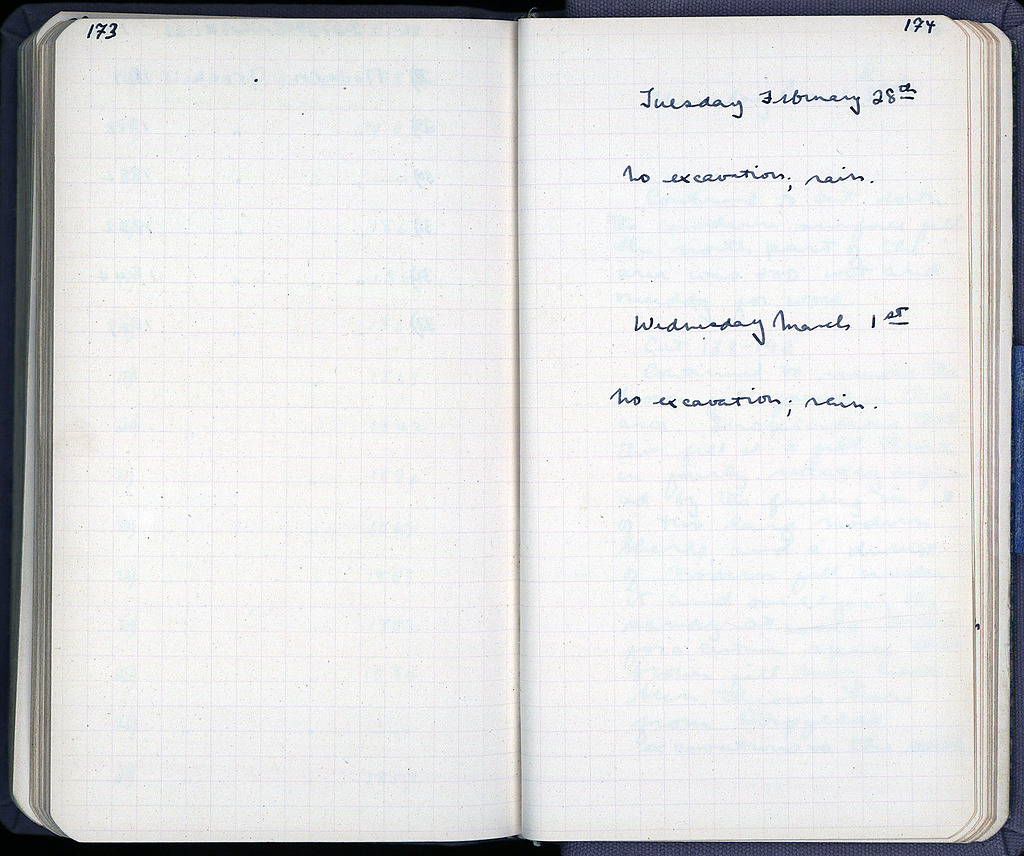 173
174
Tuesday February 28th
No excavation; rain.
Wednesday March 1st
No excavation; rain.